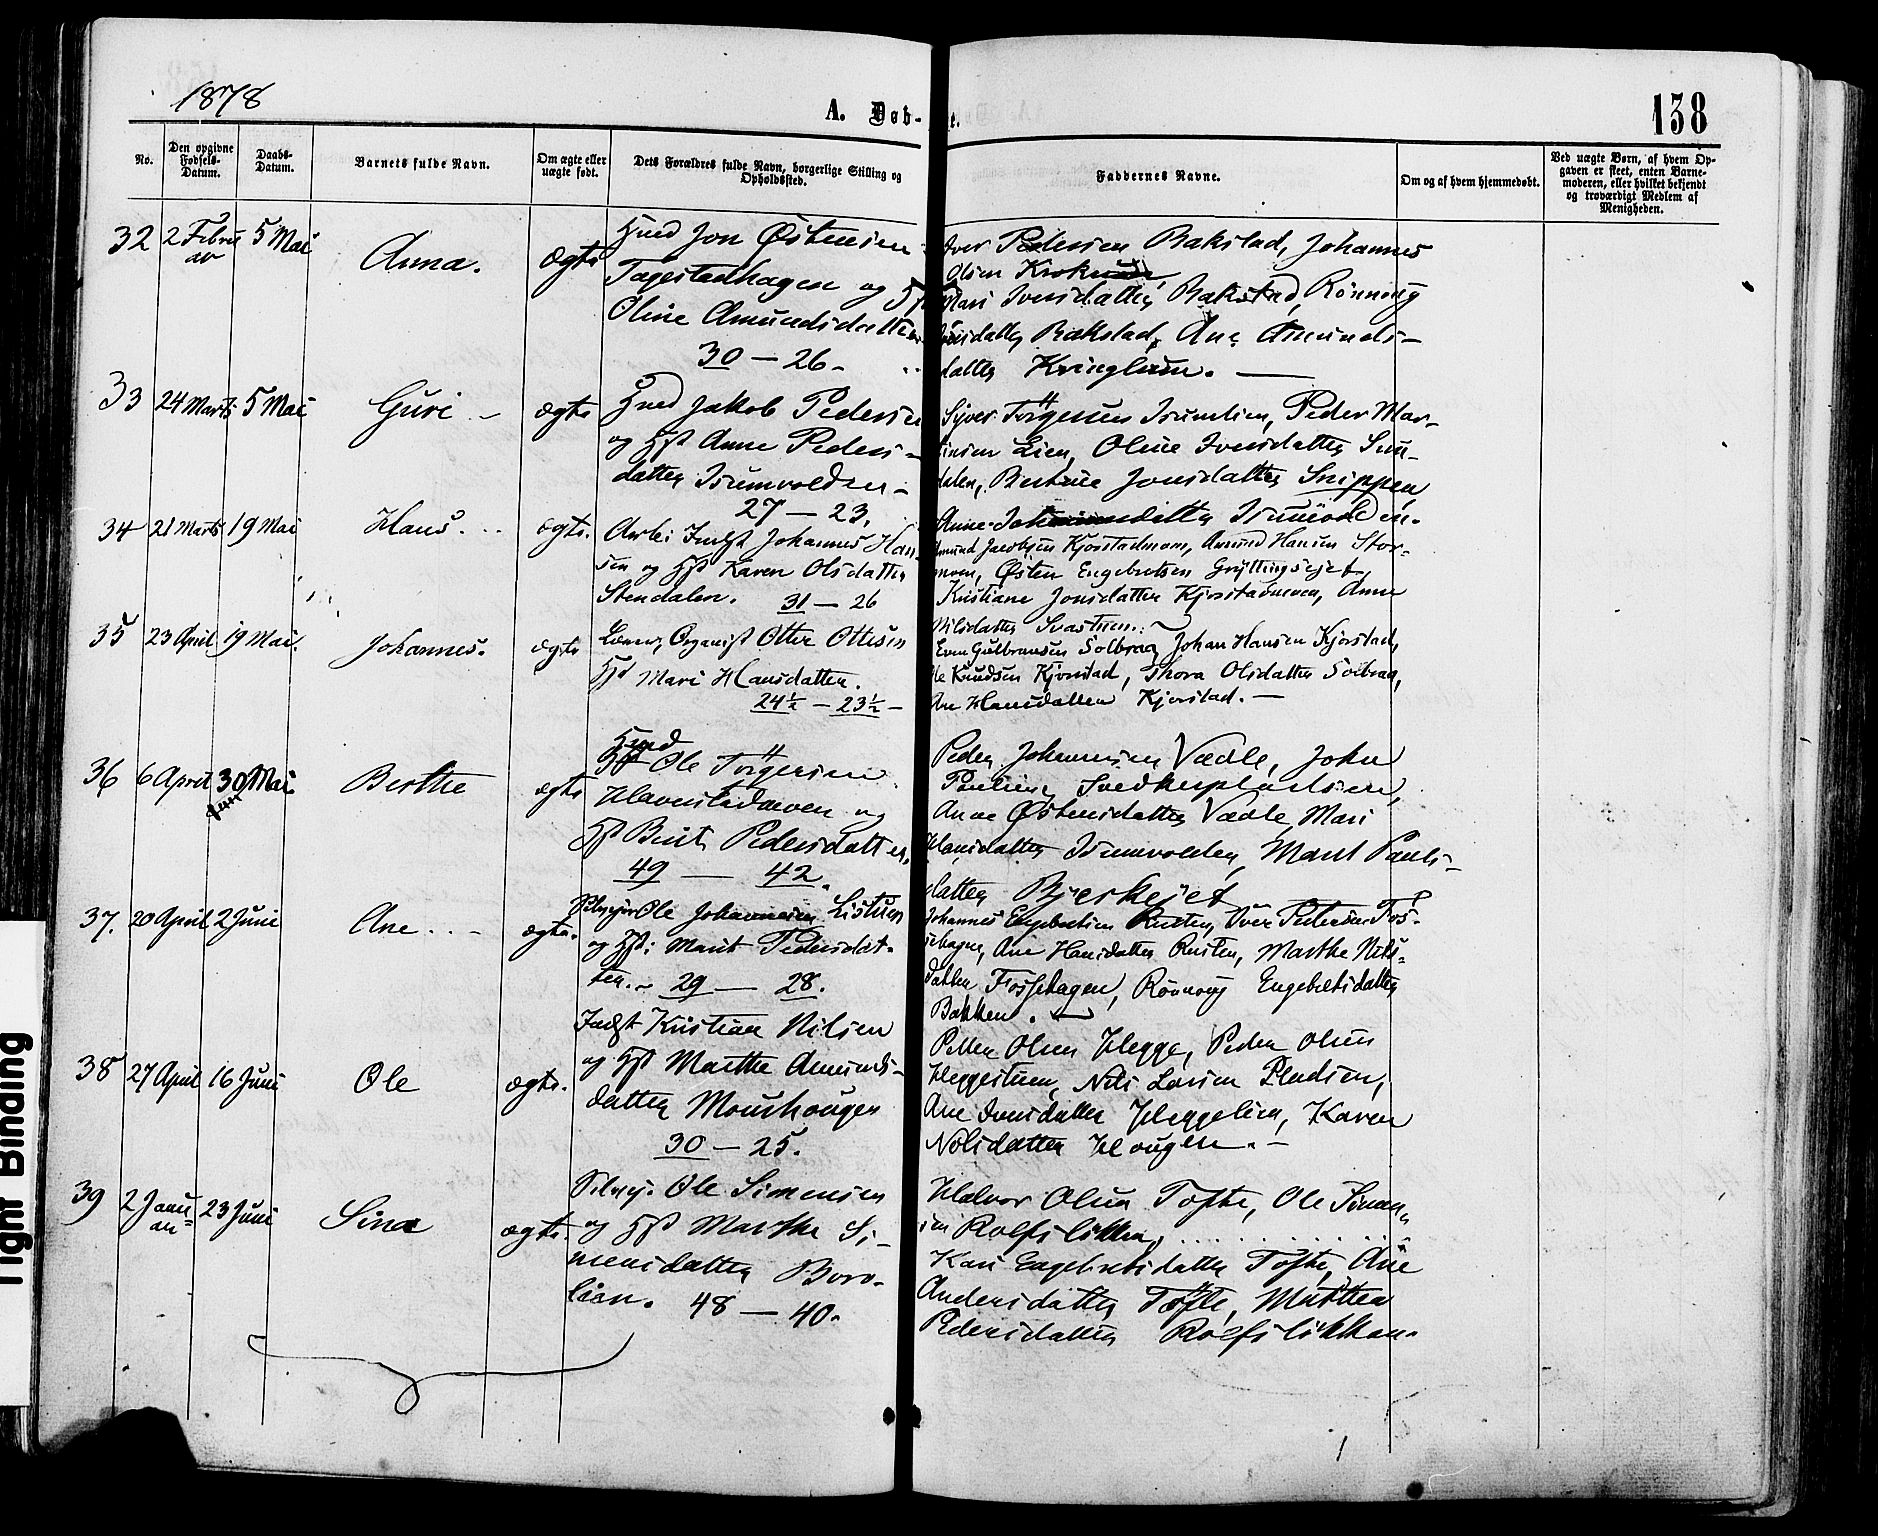 1878
A. Døb-
te.
138
No.
Den opgivne Fødsels-Datum.
Daabs-Datum.
Barnets fulde Navn.
Om ægte eller uægte født.
Dets Forældres fulde Navn, borgerlige Stilling og Opholdssted.
Faddernes Navne.
Om og af hvem hjemmedøbt.
Ved uægte Børn, af hvem Opgaven er skeet, enten Barnemoderen, eller hvilket bekjendt og troværdigt Medlem af Menigheden.
32 2 Februar 5 Mai Anna. ægte
Jon Østensen
Tagestadhagen og
Oline Amundsdatter
30 — 26.
Iver Pedersen Bakstad, Johannes
Olsen
Mari Iversdatter Bakstad, Rønnoug
Bakstad, Ane Amunds-
datter Kringlum. —
33 24 Marts 5 Mai Guri - ægte
Jakob Pedersen
og Anne Peders-
datter Isumvolden
27 — 23.
Syver Törgersen Isumlien, Peder Mar-
tinsen Lien, Oline Iversdatter Sun-
dalen, Jonsdatter Snippen,
Anne Isumvolden.
34 21 Marts 19 Mai Hans. ægte.
Arb. Indst Johannes Han-
sen og Karen Olsdatter
Stendalen. 31 — 26
Amund Jacobsen Kjorstadmoen, Amund Hansen Stor-
moen, Østen Engebretsen Gryttingsejet,
Kristiane Jonsdatter Kjorstadmoen, Anne
Nilsdatter
35 23 April 19 Mai. Johannes. ægte
Organist Otter Ottesen
Mari Hansdatter.
24½ — 23½ —
Even Gulbransen Solbraa, Johan Hansen Kjorstad,
Ole Knudsen Kjorstad, Thora Olsdatter Solbraa,
Ane Hansdatter Kjorstad. —
36 6 April 30 Mai Berthe ægte
Ole Törgersen
og
Brit Pedersdatter,
49 — 42.
Peder Johannesen Vædle, John
Anne Østensdatter Vædle, Mari
Hansdatter Isumvolden, Marit Pauls-
datter Bjerkejet
37. 20 April 2 Juni Ane ægte.
Ole Johannesen Listuen
og Marit Pedersdat-
ter. - 29 — 28.
Johannes Engebretsen Rusten, Iver Pedersen Fos-
sehagen, Ane Hansdatter Rusten, Marthe Nils-
datter Fossehagen, Rønnoug Engebretsdatter
Bakken. —
38 27 April 16 Juni Ole ægte.
Indst Kristian Nilsen
og Marthe Amunds-
datter Mourhougen
30 — 25.
Petter Olsen Hegge, Peder Olsen
Heggestuen, Nils Larsen Pladsen,
Ane Iversdatter Heggelien, Karen
Nilsdatter Hougen. —
39 2 Januar 23 Juni Sina ægte.
Ole Simensen
og Marthe Si-
mensdatter Boro-
lien. 48 — 40.
Halvor Olsen Tofte, Ole Simen-
sen Rolfsløkken,
Kari Engebretsdatter Tofte, Ane
Andersdatter Tofte, Marthea
Pedersdatter Rolfsløkken.
Tight Binding